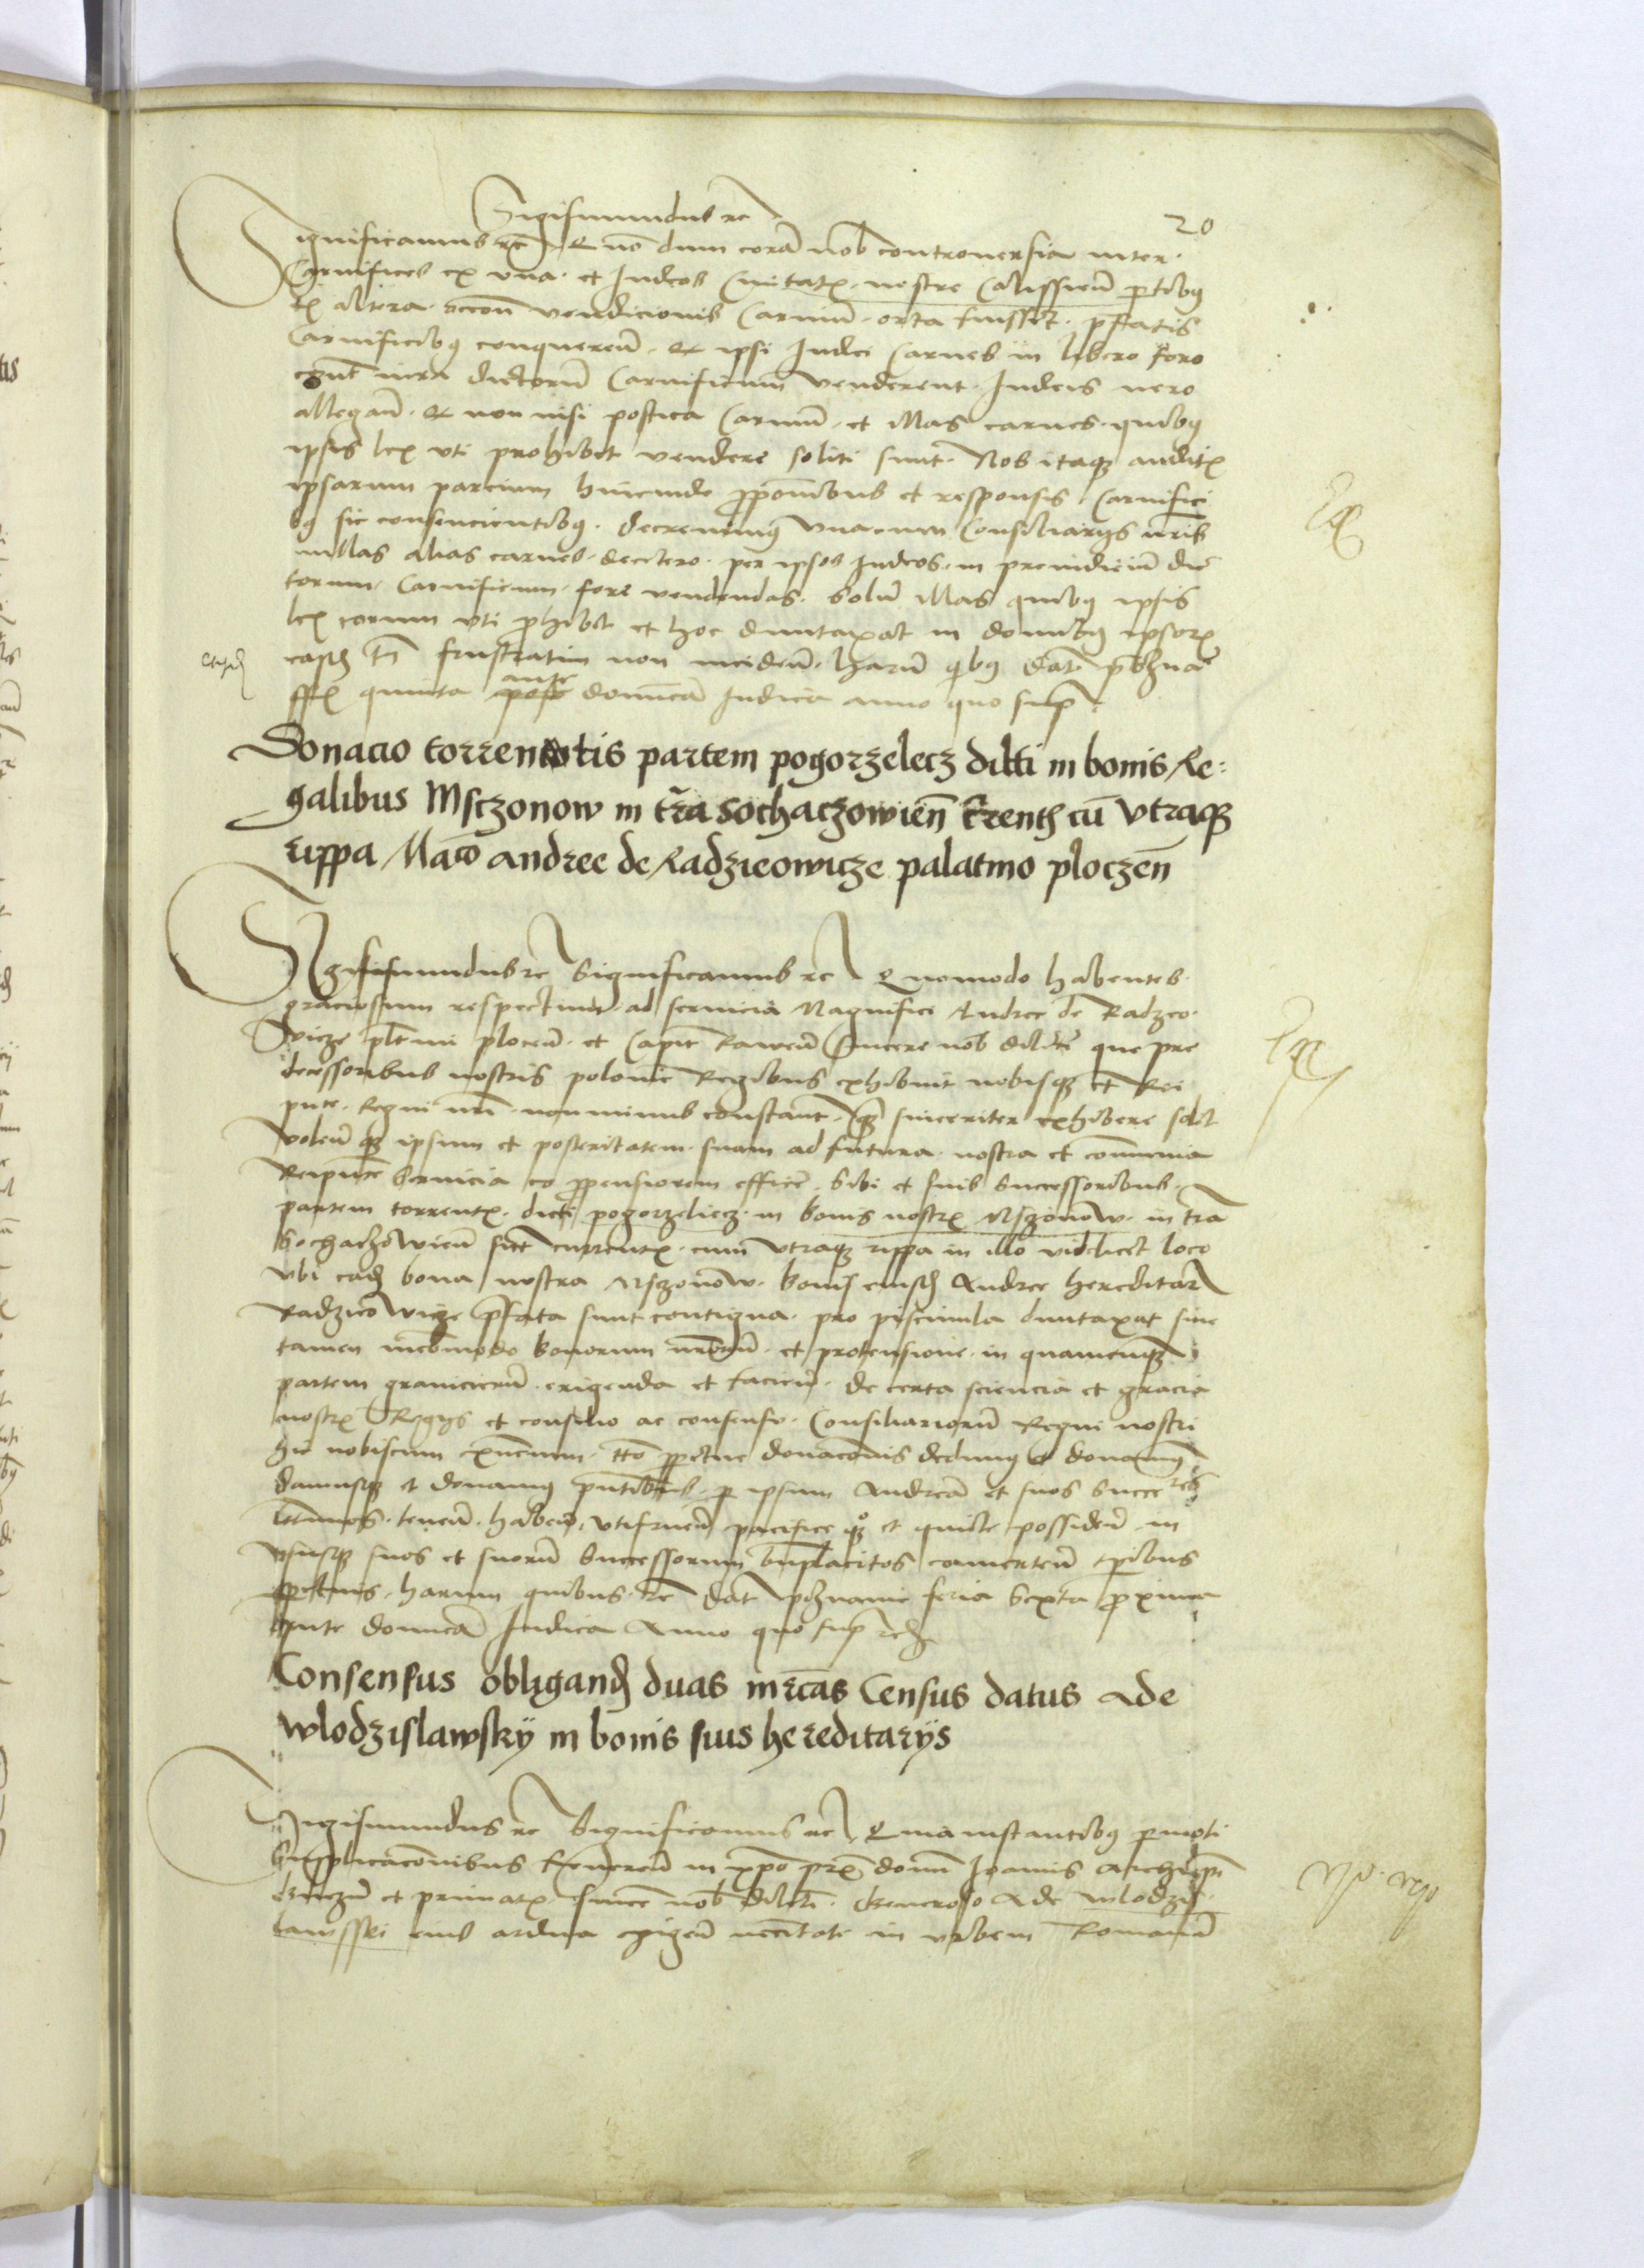 Sigismundus rc
20
Significamus rc Quo dum corā nob controversia inter
Carnifices ex una et Iudeos Civitatis nostre Calissieñ ptibus
ex altera rccoñ vendicionis Carniū orta fuisset pfatis
Carnificibus conquereñ q ipsi Iudei carnes in libero foro
iura dictorū Carnificum venderent Iudeis vero
allegañ q non nisi postica Carniū et illas carnes quibus
ipsis lex uti prohibet vendere soliti sunt Nos itaque auditis
ipsarum parcium huiusmodi pposicōnibus et responsis Carnifici
bus sic consencientibus decrevimus unacum Consiliariis nris
nullas alias carnes decetero per ipsos Iudeos in preiudiciū dic
torum Carnificum fore vendendas Solū illas quibus ipsis
lex eorum uti phibet et hoc duntaxat in domibus ipsorum
easdem tñ frustratim non incideñ harū quibus dat
quinta post ante domīcā Iudica anno quo supra
Donacio torrentis partem pogorzelecz dicti in bonis Re=
galibus Msczonow in tr̄a Sochaczowieñ cū utraque
rippa Maco andree de Radzieowicze palatino ploczeñ
Sigismundus rc Significamus rc Quomodo habentes
graciosum respectum ad servicia Magnifici Andree de Radzeo
vicze pltini ploceñ et Capit Raweñ Sincere nob dilcti que pre
decessoribus nostris polonie Regibus exhibuit nobisque et Rei
puce Regni nri non minus constant quam sinceriter exhibere solet
voleñ que ipsum et posteritatem suam ad futura nostra et communia
Reipuce servicia eo ppensiorem efficere sibi et suis Successoribus
partem torrentis dicti pogorzeliecz in bonis nostris Msczonow in trā
Sochaczowieñ sitt currentis cum utraque rippa in illo videlicet loco
ubi eadem bona nostra Msczonow bonis eiusdem Andree hereditar
Radzieowicze pfata sunt contigua pro piscinula duntaxat sine
tamen incōmodo bonorum nrorū et protensione in quamcunque
partem granicierū erigenda et facieñ de certa sciencia et gracia
nostris Regiis et consilio ac consensu Consiliariorū Regni nostri
hic nobiscum exñcium tto ppetue donacōnis dedimus et donavimus
damusque et donamus pntibus p ipsum Andreā et suos Succeres
lttimos teneñ habeñ utifrueñ pacifice que et quiete possideñ in
ususque suos et suorū Successorum bnplacitos converteñ tpibus
ppetuis harum quibus rc Dat poznanie feria Sexta pxima
Ante domīcā Iudica Anno quo supra
Consensus obligand duas mrcas Census datus Ade
Wlodzislawsky in bonis suis hereditariis
Sigismundus rc Significamus rc Quia instantibus pmoti
Supplicacōnibus Revereñ in xpo pris domī Ioannis Archiepi
Gneznen et primatis since nob dilcti Generoso Ade wlodzis
lawsski eius ardua exigeñ necitate in urbem Romanā